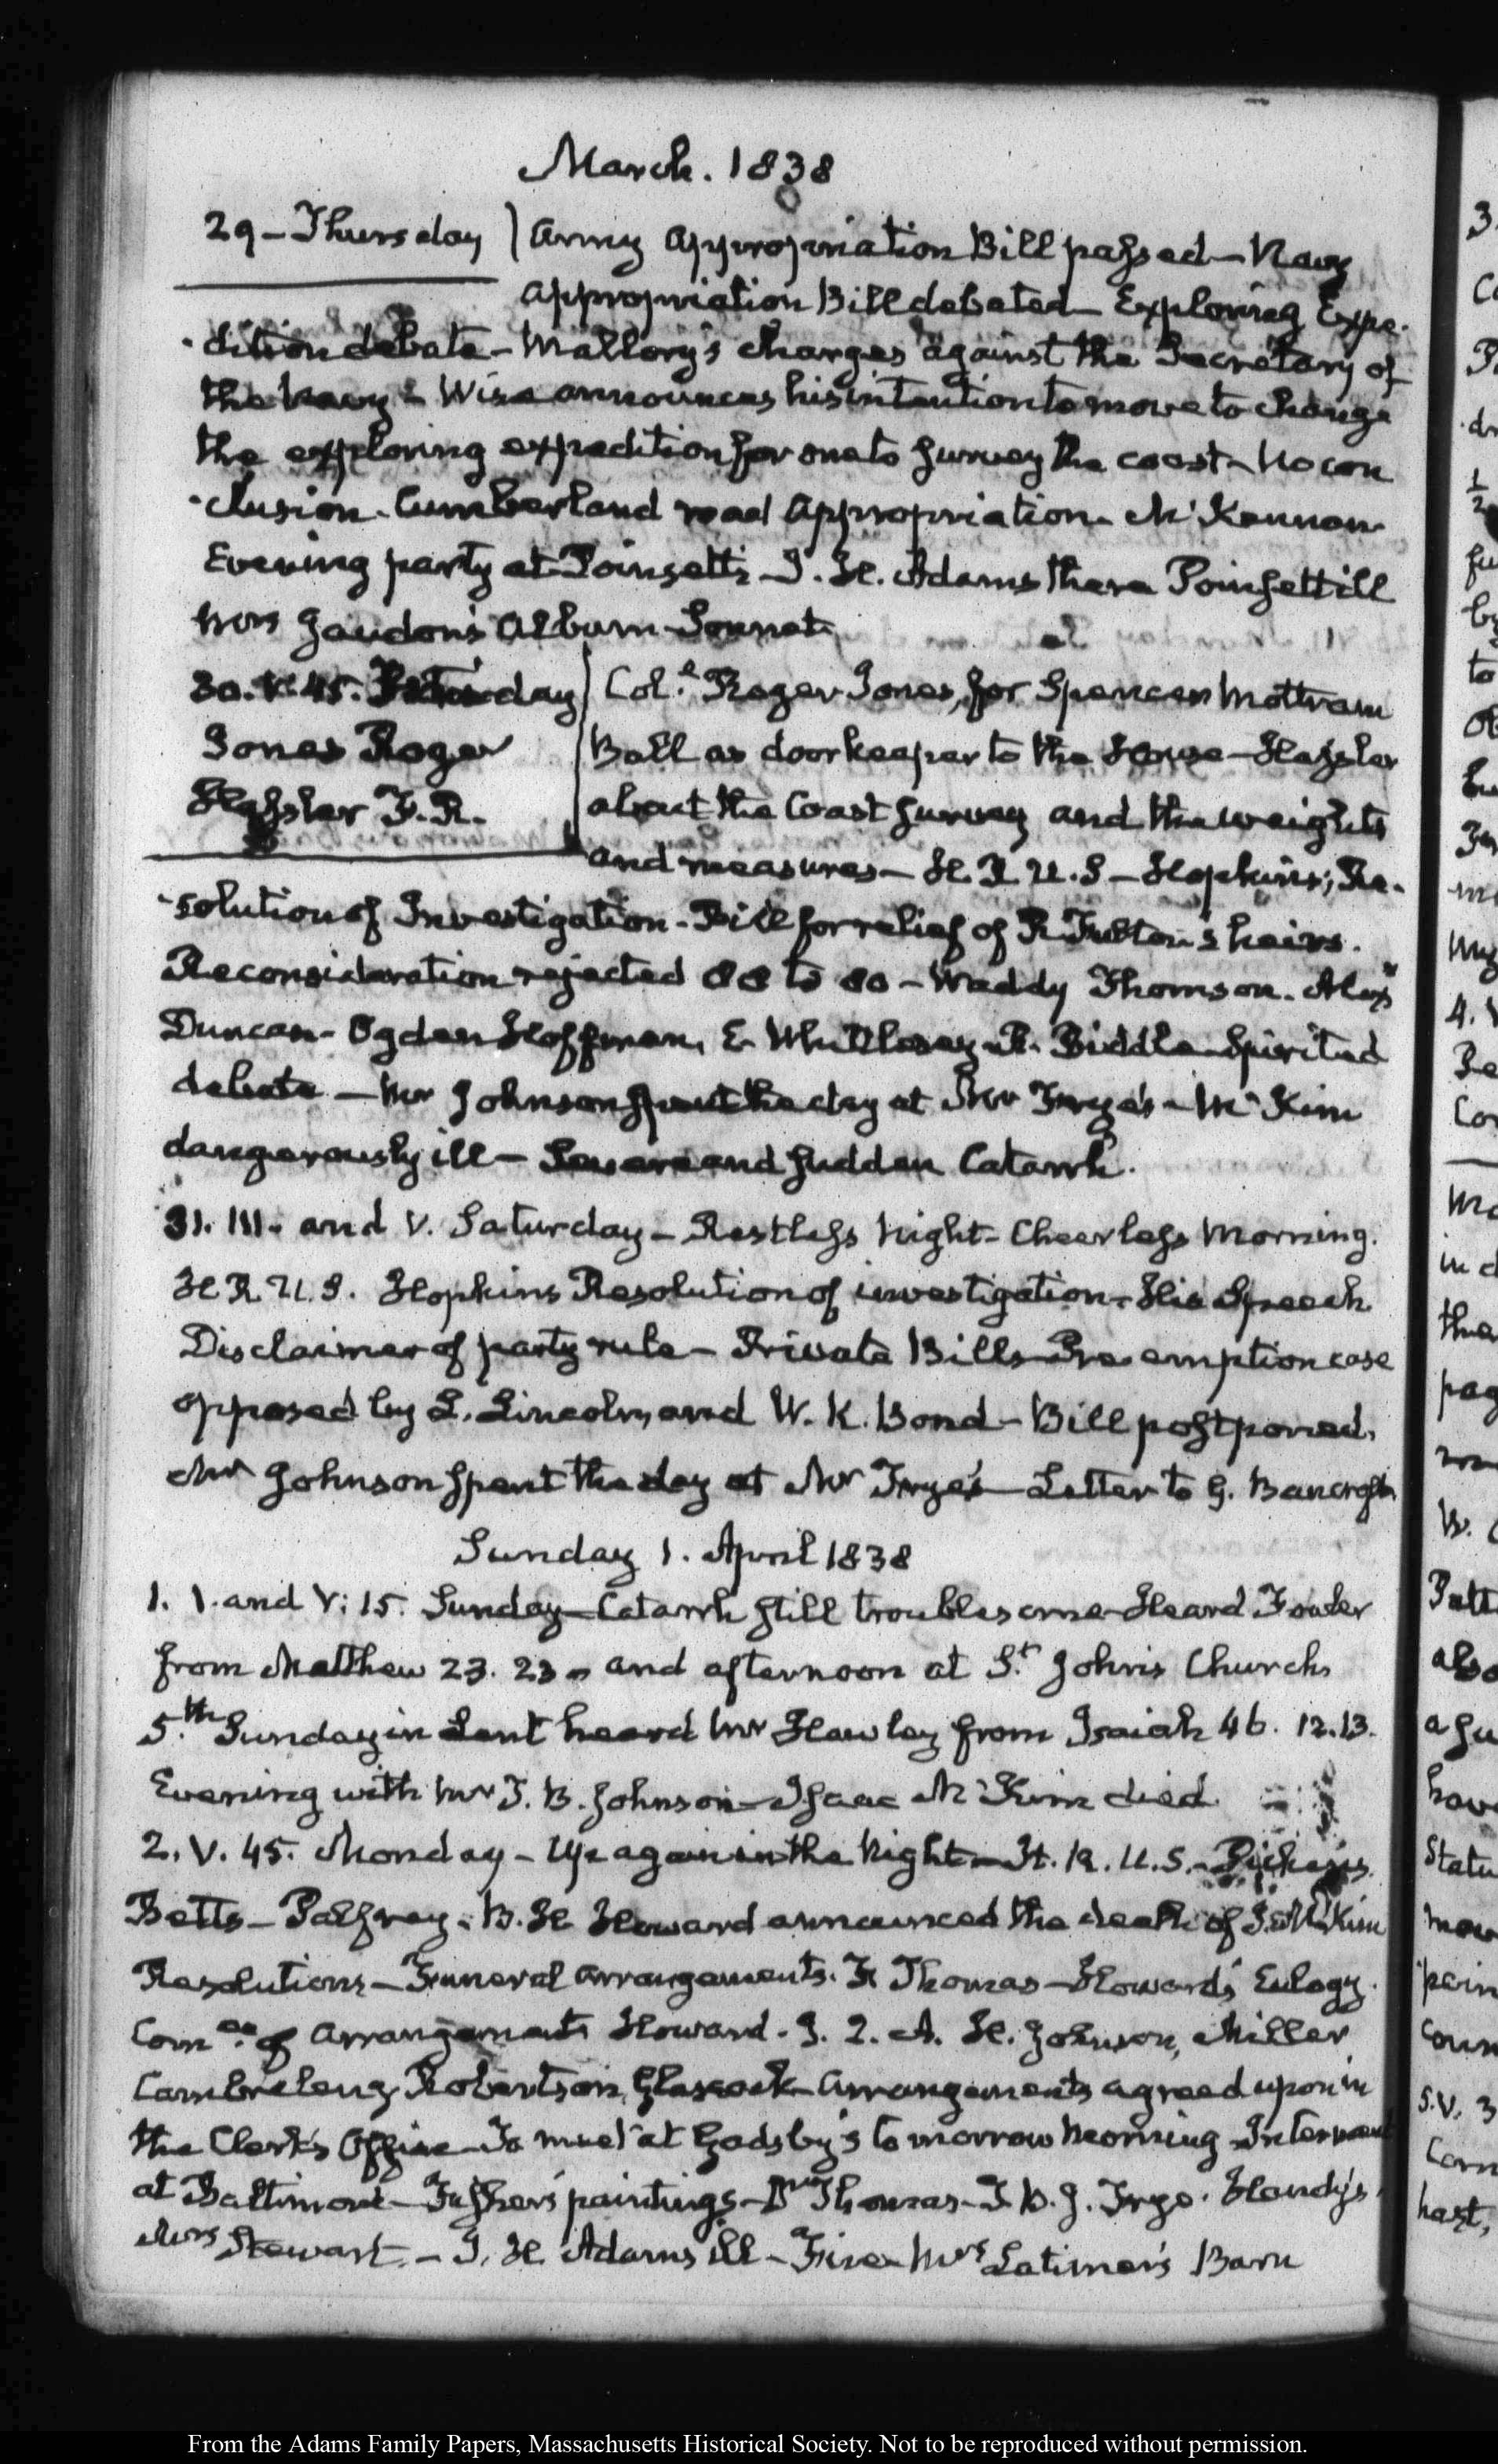 March. 1838
29 – Thursday ) Army Appropriation Bill passed – Navy
appropriation Bill debated – Exploring Expe-
-dition debate – Mallory's charges against the Secretary of
the Navy – Wise announces his intention to move to change
the exploring expedition for one to survey the coast – No con
-clusion – Cumberland road Appropriation – McKennan
Evening party at Poinsett's – I. H. Adams there Poinsett ill
Mrs Gaudon's Album Sonnet
30. V. 45. day
Jones Roger
Hassler F. R.
Col.l Roger Jones, for Spencer Mottram
Ball as doorkeeper to the House – Hassler
about the Coast survey and the weights
and measures – H. R. U. S – Hopkins; Re-
-solution of Investigation – Bill for relief of R Fulton's heirs.
Reconsideration rejected 88 to 80 – Waddy Thomson. Alexr
Duncan – Ogden Hoffman, E Whittlesey – R. Biddle – Spirited
debate – Mr Johnson spent the day at Mr Frye's – McKim
dangerously ill – Severe and sudden Catarrh.
31. III. and V. Saturday – Restless Night – Cheerless Morning.
H R. U. S. Hopkins Resolution of investigation – His Speech
Disclaimer of party rule – Private Bills – Pre-emption case
opposed by L. Lincoln, and W. K. Bond – Bill postponed.
Mr Johnson spent the day at Mr Frye's – Letter to G. Bancroft
Sunday 1. April 1838
1. V. and V: 15. Sunday – Catarrh still troublesome – Heard Fowler
from Matthew 23. 23 – and afternoon at St. John's Church
5.th Sunday in Lent heard Mr Hawley from Isaiah 46. 12.13.
Evening with Mr T. B. Johnson – Isaac McKim died
2. V. 45. Monday – Up again in the Night – H. R. U. S. – Pickens
Betts – Palfrey – B. H Howard announced the death of I. McKim
Resolutions – Funeral arrangements. F. Thomas – Howard's Eulogy.
Comee. of Arrangements Howard. J. Q. A. H. Johnson, Miller
Cambreleng, Robertson, Glascock – Arrangements agreed upon in
the Clerk's Office – To meet at Gadsby's tomorrow Morning – Interment
at Baltimore – Fisher's paintings – Dr Thomas – T. B. J. Frye. Handy's.
Mrs Stewart – I. H Adams ill – Fire – Mrs Latimer's Barn
From the Adams Family Papers, Massachusetts Historical Society. Not to be reproduced without permission.